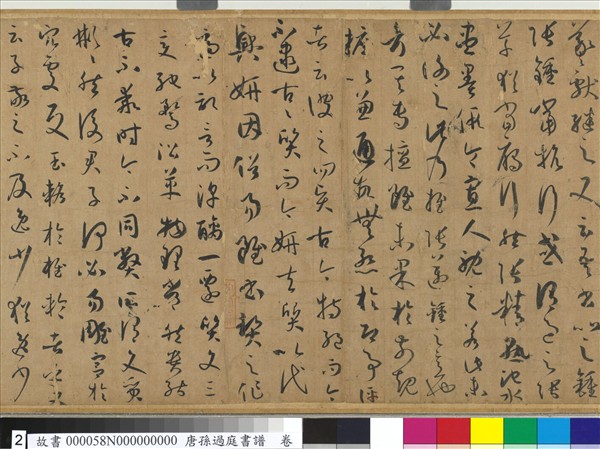 羲獻繼之又云吾書比之鍾
張鍾當抗行或謂過之張
草猶當鴈行然張精熟池水
盡墨假令寡人耽之若此未
必謝之此乃推張邁鍾之意也
考其專擅雖未果於前規
摭以兼通故無慙於即事評
者云彼之四賢古今特絕而今
不逮古古質而今妍夫質以代
興妍因俗易雖書契之作
適以記言而淳醨一遷質文三
變馳騖沿革物理常然貴能
古不乖時今不同弊所謂文質
彬彬然後君子何必易雕宮於
穴處反玉輅於椎輪者乎又
云子敬之不及逸少猶逸少
2 故書 000058N000000000 唐孫過庭書譜 卷